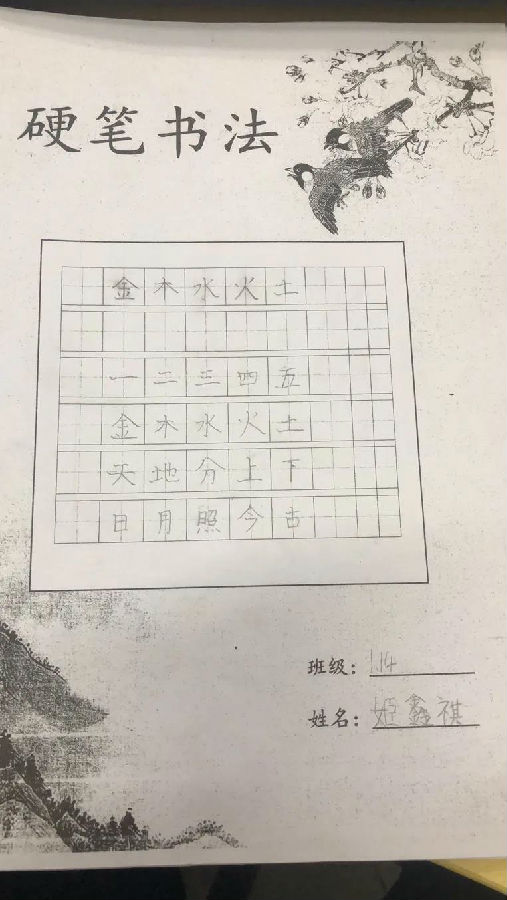 硬笔书法
金木水火土
一二三四五
金木水火土
天地分上下
日月照今古
班级：1.14
姓名：姬鑫祺